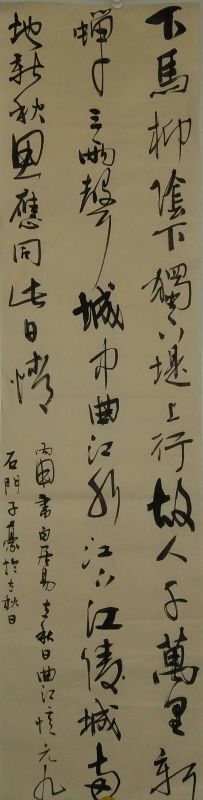 下馬柳陰下獨上堤上行故人千萬里新
蟬三兩聲城中曲江水江上江陵城兩
地新秋思應同此日情
書白居易立秋日曲江憶元九
石門子豪於立秋日